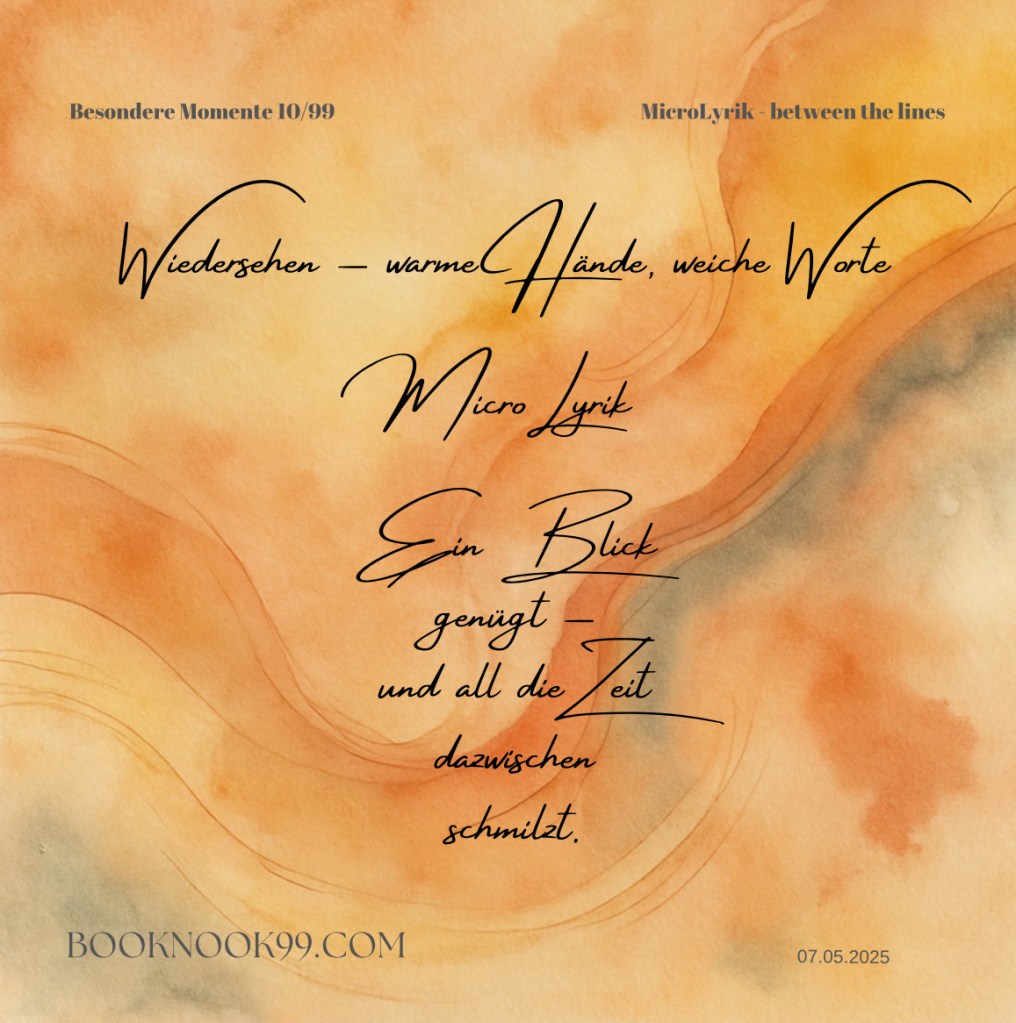 Besondere Momente 10/99
MicroLyrik - between the lines
Wiedersehen – warme Hände, weiche Worte
Micro Lyrik
Ein Blick
genügt –
und all die Zeit
dazwischen
schmilzt.
BOOKNOOK99.COM
07.05.2025